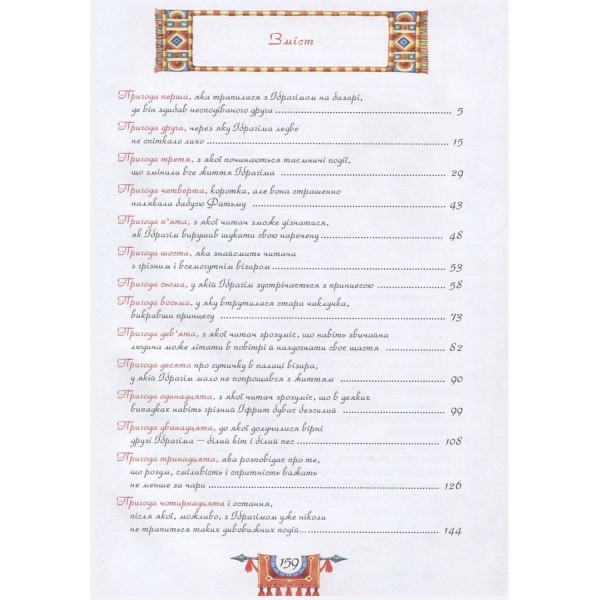 Зміст
Пригода перша, яка трапилася з Ібрагімом на базарі,
де він здибав несподіваного друга 5
Пригода друга, через яку Ібрагіма ледве
не спіткало лихо 15
Пригода третя, з якої починаються таємничі події,
що змінили все життя Ібрагіма 29
Пригода четверта, коротка, але вона страшенно
налякала бабусю Фатьму 43
Пригода п'ята, з якої читач зможе дізнатися,
як Ібрагім вирушив шукати свою наречену 48
Пригода шоста, яка знайомить читача
з грізним і всемогутнім візиром 53
Пригода сьома, у якій Ібрагім зустрічається з принцесою 58
Пригода восьма, у яку втрутилася стара чаклунка,
викравши принцесу 73
Пригода дев'ята, з якої читач зрозуміє, що навіть звичайна
людина може літати в повітрі й наздогнати своє щастя 82
Пригода десята про сутичку в палаці візира,
у якій Ібрагім мало не попрощався з життям 90
Пригода одинадцята, з якої читач зрозуміє, що в деяких
випадках навіть грізний Іфрит буває безсилий 99
Пригода дванадцята, до якої долучилися вірні
друзі Ібрагіма — білий кіт і білий пес 108
Пригода тринадцята, яка розповідає про те,
що розум, сміливість і спритність важать
не менше за чари 126
Пригода чотирнадцята і остання,
після якої, можливо, з Ібрагімом уже ніколи
не трапиться таких дивовижних подій... 144
159